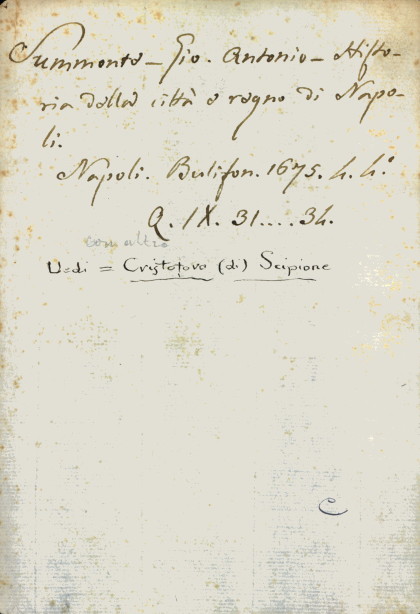 Summonte - Gio. Antonio - Histo-
ria della città e regno di Napo-
li.
Napoli. Bulifon. 1675. 4. 4.°
Q. IX. 31.... 34.
con altro
Vedi = Cristoforo (di) Scipione
C